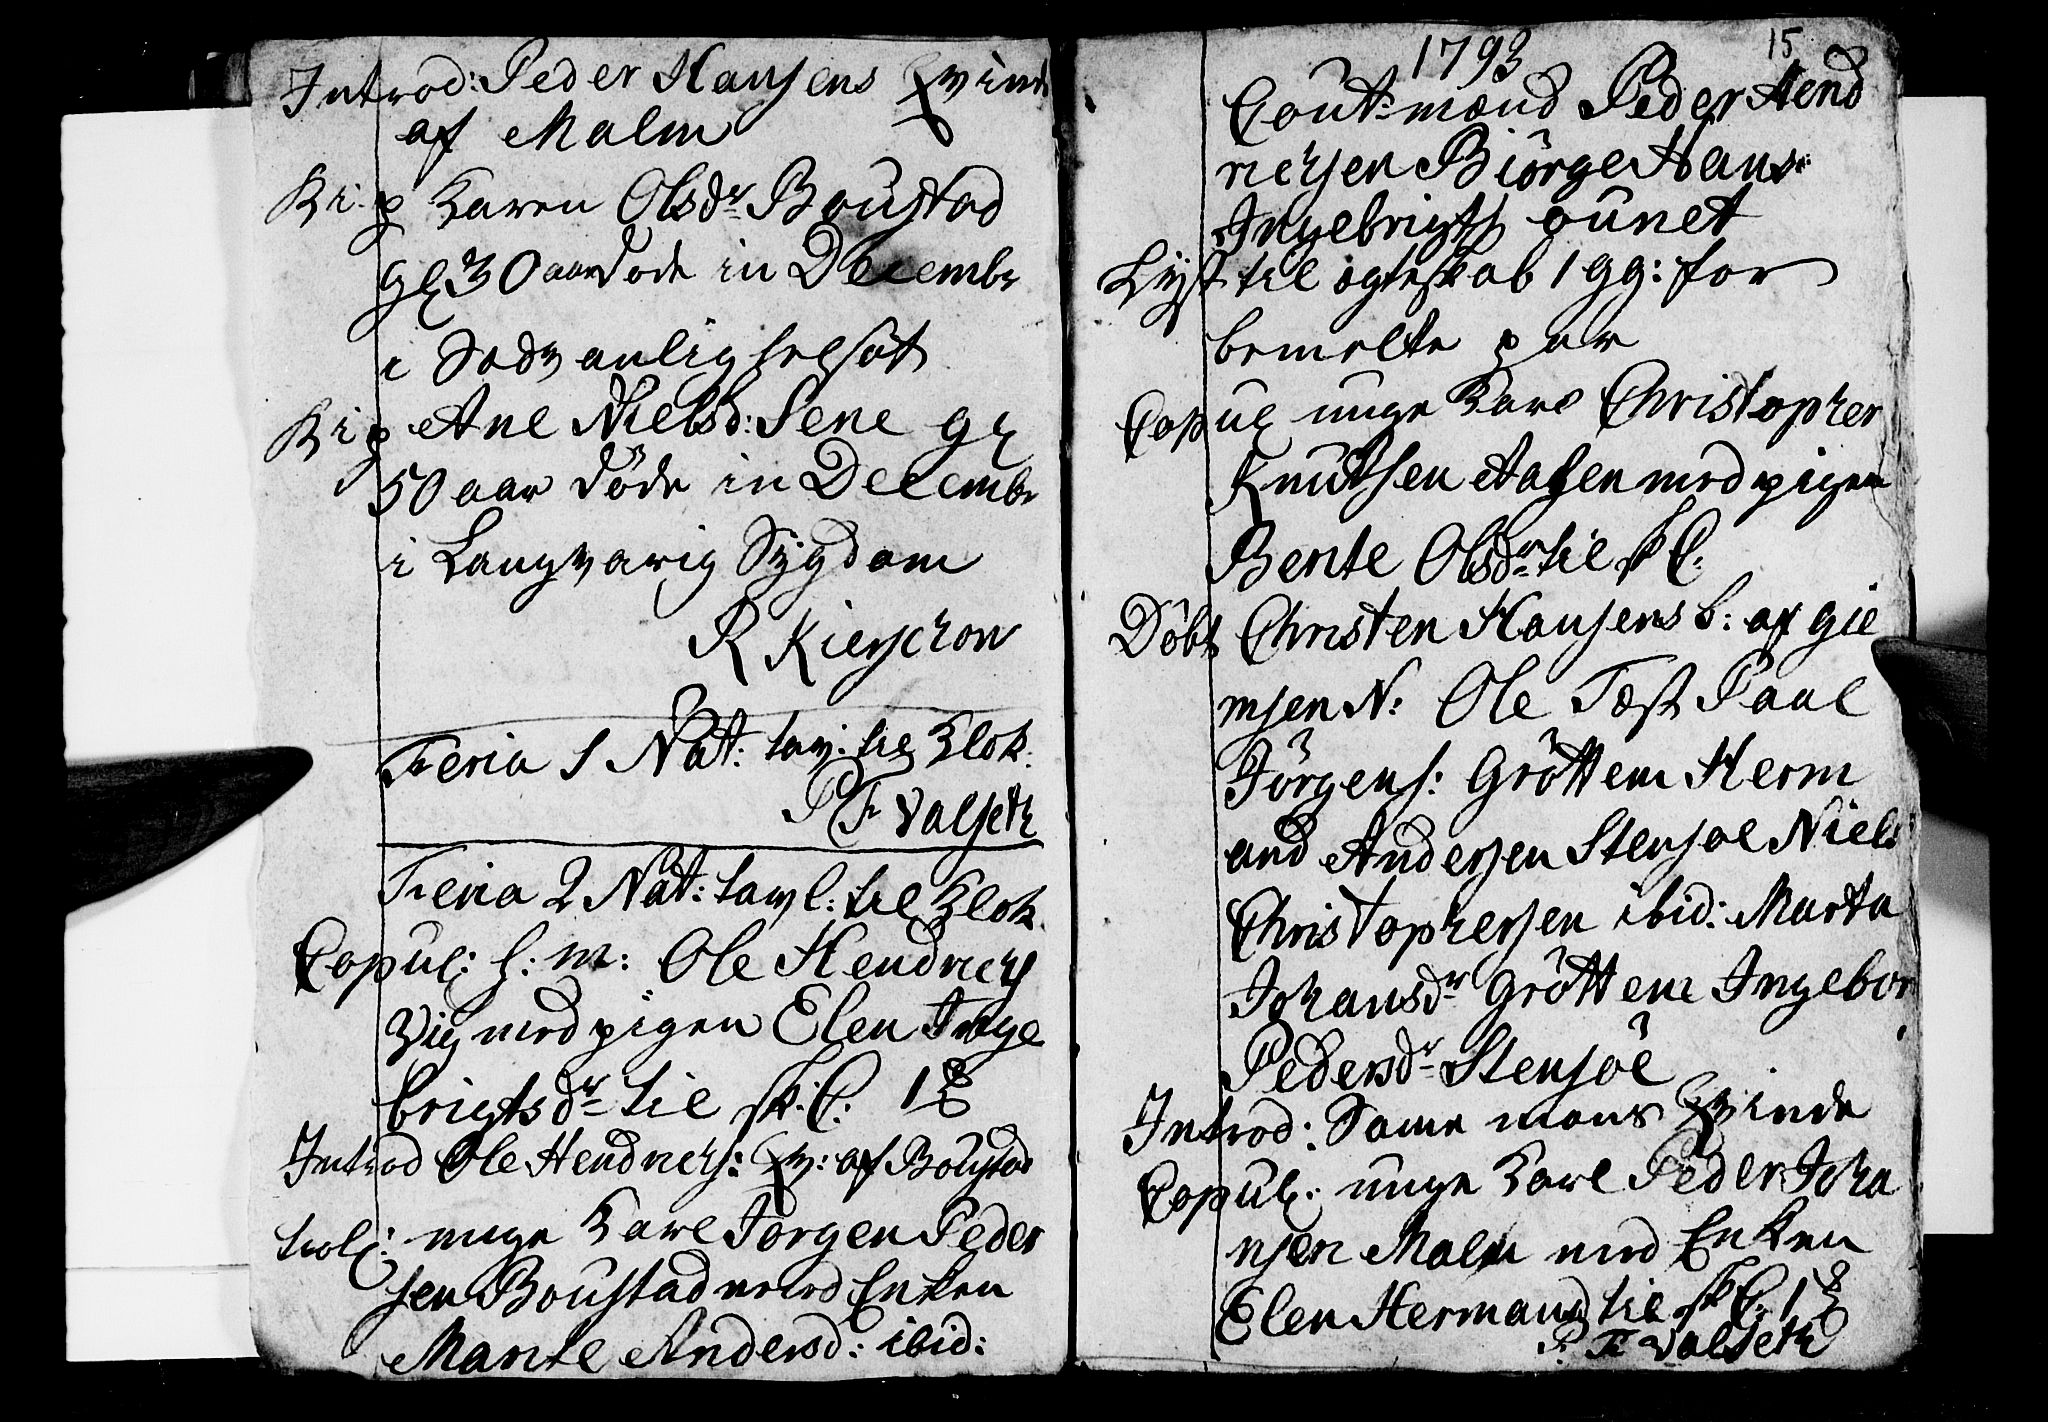 Introd: Peder Hansens Qvinde
af Malm
Karen Olsdr Boustad
gl 30 aar Døde in Decembr
i Sædvanlig helsot
Ane Nielsd: Lene gl
50 aar døde in Decembr
i Langvarig Sygdom
R Kierschow
Feria 1 Nat: tavl: til Klok.
P F Valseth
Feria 2 Nat: tavl: til Klok
Copul: s: m: Ole Hendrichs
Vig med pigen Elen Inge
brigtsdr til sk. C. 1
Introd Ole Hendrichs: Qv: af Boustad
trol: unge Karl Jørgen Peder
sen Boustad med Enken
Marite Andersd: ibid:
1793
15
Cout: mænd Peder Hend
richsen Biörge Hans
Ingebrigts ounet
Lyst til ægteskab 1 gg: for
bemelte par
Copul unge Karl Christopher
Knutsen Aasen med pigen
Bente Olsdr til sk C.
Döbt Christen Hansens b: af gie
msen N: Ole Test Paal
Jörgens: Gröttem Herm
and Andersen Stensøe Niels
Christophersen ibid: Marta
Johansdr Gröttem Ingebor
Pedersdr Stensöe
Introd: Same mans Qvinde
Copul: unge Karl Peder Joha
nsen Malm med Enken
Elen Hermands til sk C. 1
P. F. Valseth